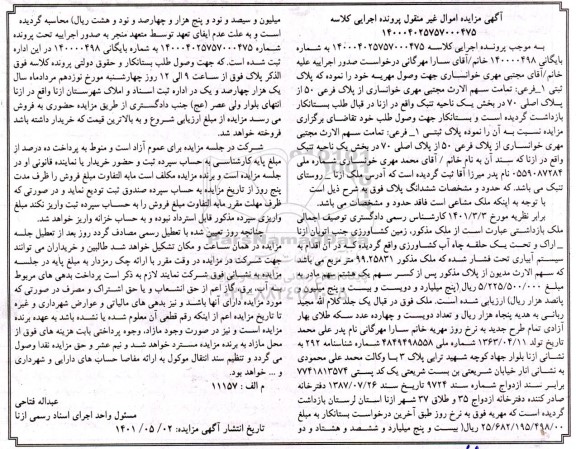 آگهی مزایده اموال غیر منقول پرونده اجرایی کلاسه
۱۴۰۰۰۴۰۲۵۷۵۷۰۰۰۴۷۵
به موجب پرونده اجرایی کلاسه ۱۴۰۰۰۴۰۲۵۷۵۷۰۰۰۴۷۵ به شماره
بایگانی ۱۴۰۰۰۰۴۹۸ خانم /آقای سارا مهرگانی درخواست صدور اجراییه علیه
خانم/آقای مجتبی مهری خوانساری جهت وصول مهریه خود را نموده که پلاک
ثبتی ۱_فرعی: تمامت سهم الارث مجتبی مهری خوانساری از پلاک فرعی ۵۰ از
پلاک اصلی ۷۰ در بخش یک ناحیه تنبک واقع در ازنا در قبال طلب بستانکار
بازداشت گردیده است و بستانکار جهت وصول طلب خود تقاضای برگزاری
مزایده نسبت به آن را نموده پلاک ثبتی ۱_ فرعی: تمامت سهم الارث مجتبی
مهری خوانساری از پلاک فرعی ۵۰ از پلاک اصلی ۷۰ در بخش یک ناحیه تنبک
واقع در ازنا که سند آن به نام خانم / آقای محمد مهری خوانساری شماره ملی
۰۵۵۹۰۸۷۲۸۴ نام پدر میرزا آقا ثبت گردیده است که آدرس ملک ازنا _ روستای
تنبک می باشد. که حدود و مشخصات ششدانگ پلاک فوق به شرح ذیل است
با توجه به اینکه ملک مشاعی است فاقد حدود و مشخصات می باشد.
برابر نظریه مورخ ۱۴۰۱/۳/۳ کارشناس رسمی دادگستری توصیف اجمالی
ملک بازداشتی عبارت است از ملک مذکور، زمین کشاورزی جنب اتوبان ازنا
_ اراک و تحت یک حلقه چاه آب کشاورزی واقع گردیده است در آن اقدام به
سیستم آبیاری تحت فشار شده که ملک مذکور ۹۹.۲۵۸۳۱ متر مربع می باشد
که سهم الارث مدیون از پلاک مذکور پس از کسر سهم یک هشتم سهم مادر به
مبلغ ۵/۲۲۵/۵۰۰/۰۰۰ ریال (پنج میلیارد و دویست و بیست و پنج میلیون و
پانصد هزار ریال) ارزیابی شده است. ملک فوق در قبال یک جلد کلام الله مجید
ربانی به هدیه پنجاه هزار ریال و تعداد دویست و چهارده عدد سکه طلای بهار
آزادی تمام طرح جدید به نرخ روز مهریه خانم سارا مهرگانی نام پدر علی محمد
تاریخ تولد ۱۳۶۳/۰۴/۱۱ شماره ملی ۴۸۴۹۴۹۸۵۵۸ شماره شناسنامه ۲۹۲ به
نشانی ازنا بلوار جهاد کوچه شهید ترابی پلاک ۳ با وکالت محمد علی محمودی
به نشانی انار خیابان شریعتی بن بست شریعتی یک کد پستی ۷۷۴۱۸۱۳۵۷۴
برابر سند ازدواج شماره سند ۹۷۲۴ تاریخ سند ۱۳۸۷/۰۷/۲۶ دفترخانه
صادر کننده دفترخانه ازدواج ۳۵ و طلاق ۳۷ شهر ازنا استان لرستان بازداشت
گردیده است که مهریه فوق به نرخ روز طبق آخرین درخواست بستانکار به مبلغ
۲۵/۶۸۲/۱۹۵/۴۹۸/۰۰ ریال( بیست و پنج میلیارد و ششصد و هشتاد و دو
میلیون و سیصد و نود و پنج هزار و چهارصد و نود و هشت ریال) محاسبه گردیده
است و به علت عدم ایفای تعهد توسط متعهد منجر به صدور اجراییه تحت پرونده
شماره ۱۴۰۰۰۴۰۲۵۷۵۷۰۰۰۴۷۵ به شماره بایگانی ۱۴۰۰۰۰۴۹۸ در این اداره
ثبت شده است. که جهت وصول طلب بستانکار و حقوق دولتی پرونده کلاسه فوق
الذکر پلاک فوق از ساعت ۹ الی ۱۲ روز چهارشنبه مورخ نوزدهم مردادماه سال
یک هزار چهارصد و یک در اداره ثبت اسناد و املاک شهرستان ازنا واقع در ازنا
انتهای بلوار ولی عصر (عج) جنب دادگستری از طریق مزایده حضوری به فروش
می رسد مزایده از مبلغ ارزیابی شروع و به بالاترین قیمت که خریدار داشته باشد
فروخته خواهد شد.
شرکت در جلسه مزایده برای عموم آزاد است و منوط به پرداخت ده درصد از
مبلغ پایه کارشناسی به حساب سپرده ثبت و حضور خریدار یا نماینده قانونی او در
جلسه مزایده است و برنده مزایده مکلف است مابه التفاوت مبلغ فروش را ظرف مدت
پنج روز از تاریخ مزایده به حساب سپرده صندوق ثبت تودیع نماید و در صورتی که
ظرف مهلت مقرر مابه التفاوت مبلغ فروش را به حساب سپرده ثبت واریز نکند مبلغ
واریزی سپرده مذکور قابل استرداد نبوده و به حساب خزانه واریز خواهد شد.
چنانچه روز تعیین شده با تعطیل رسمی مصادف گردد روز بعد از تعطیل جلسه
مزایده در همان ساعت و مکان تشکیل خواهد شد طالبین و خریداران می توانند
جهت شرکت در مزایده در وقت مقرر با ارائه چک رمزدار به مبلغ پایه در جلسه
مزایده به نشانی فوق شرکت نمایند لازم به ذکر است پرداخت بدهی های مربوط
به آب، برق، گاز اعم از حق انشعاب و یا حق اشتراک و مصرف در صورتی که
مورد مزایده دارای آنها باشد و نیز بدهی های مالیاتی و عوارض شهرداری و غیره
تا تاریخ مزایده اعم از اینکه رقم قطعی آن معلوم شده یا نشده باشد به عهده برنده
مزایده است و نیز در صورت وجود مازاد، وجوه پرداختی بابت هزینه های فوق از
محل مازاد به برنده مزایده مسترد خواهد شد و نیم عشر و حق مزایده نقدا وصول
می گردد و تنظیم سند انتقال موکول به ارائه مفاصا حساب های دارایی و شهرداری
و ... خواهد بود.
م الف : ۱۱۱۵۷
عبداله فتاحی
مسئول واحد اجرای اسناد رسمی ازنا
تاریخ انتشار آگهی مزایده: ۰۲/ ۰۵/ ۱۴۰۱